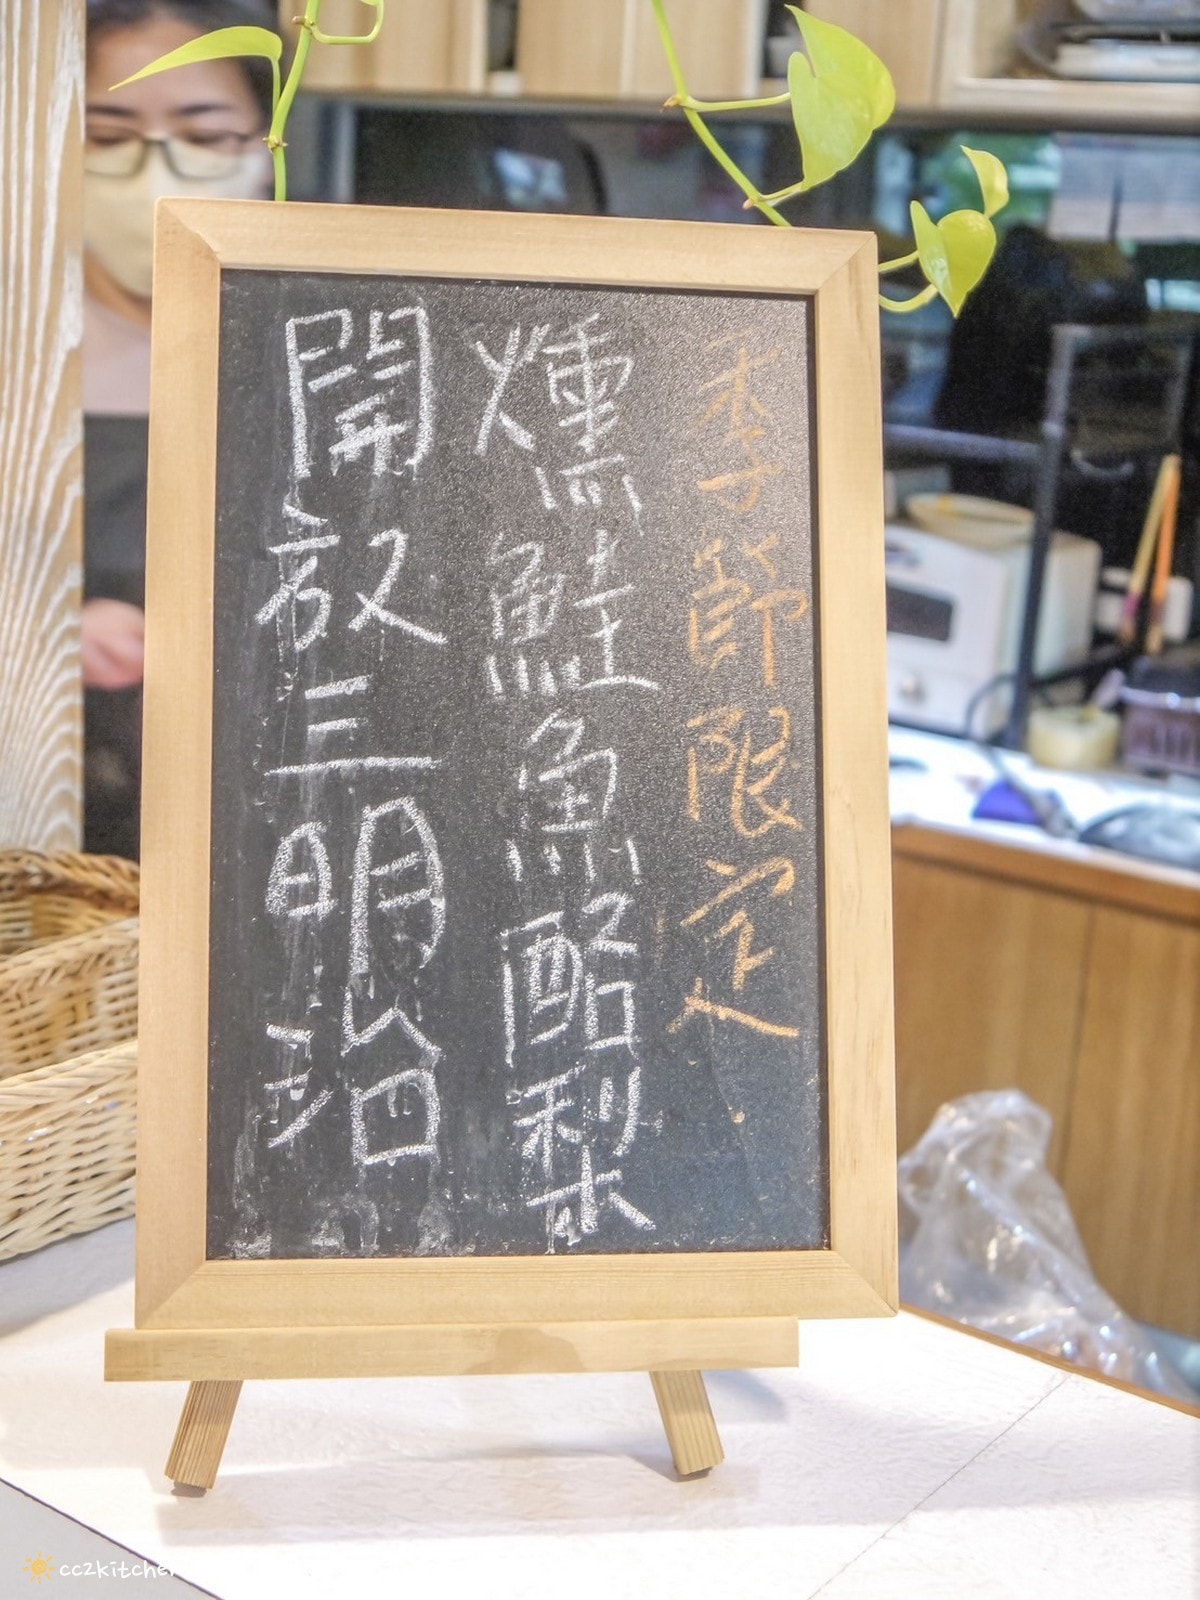 季節限定
燻鮭魚酪梨
開放三明治
cc2kitchen